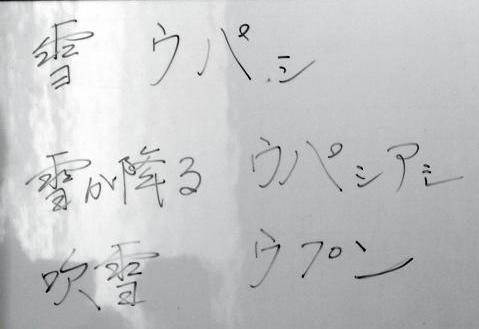 雪 ウパシ
雪が降る ウパシアシ
吹雪 ウプン